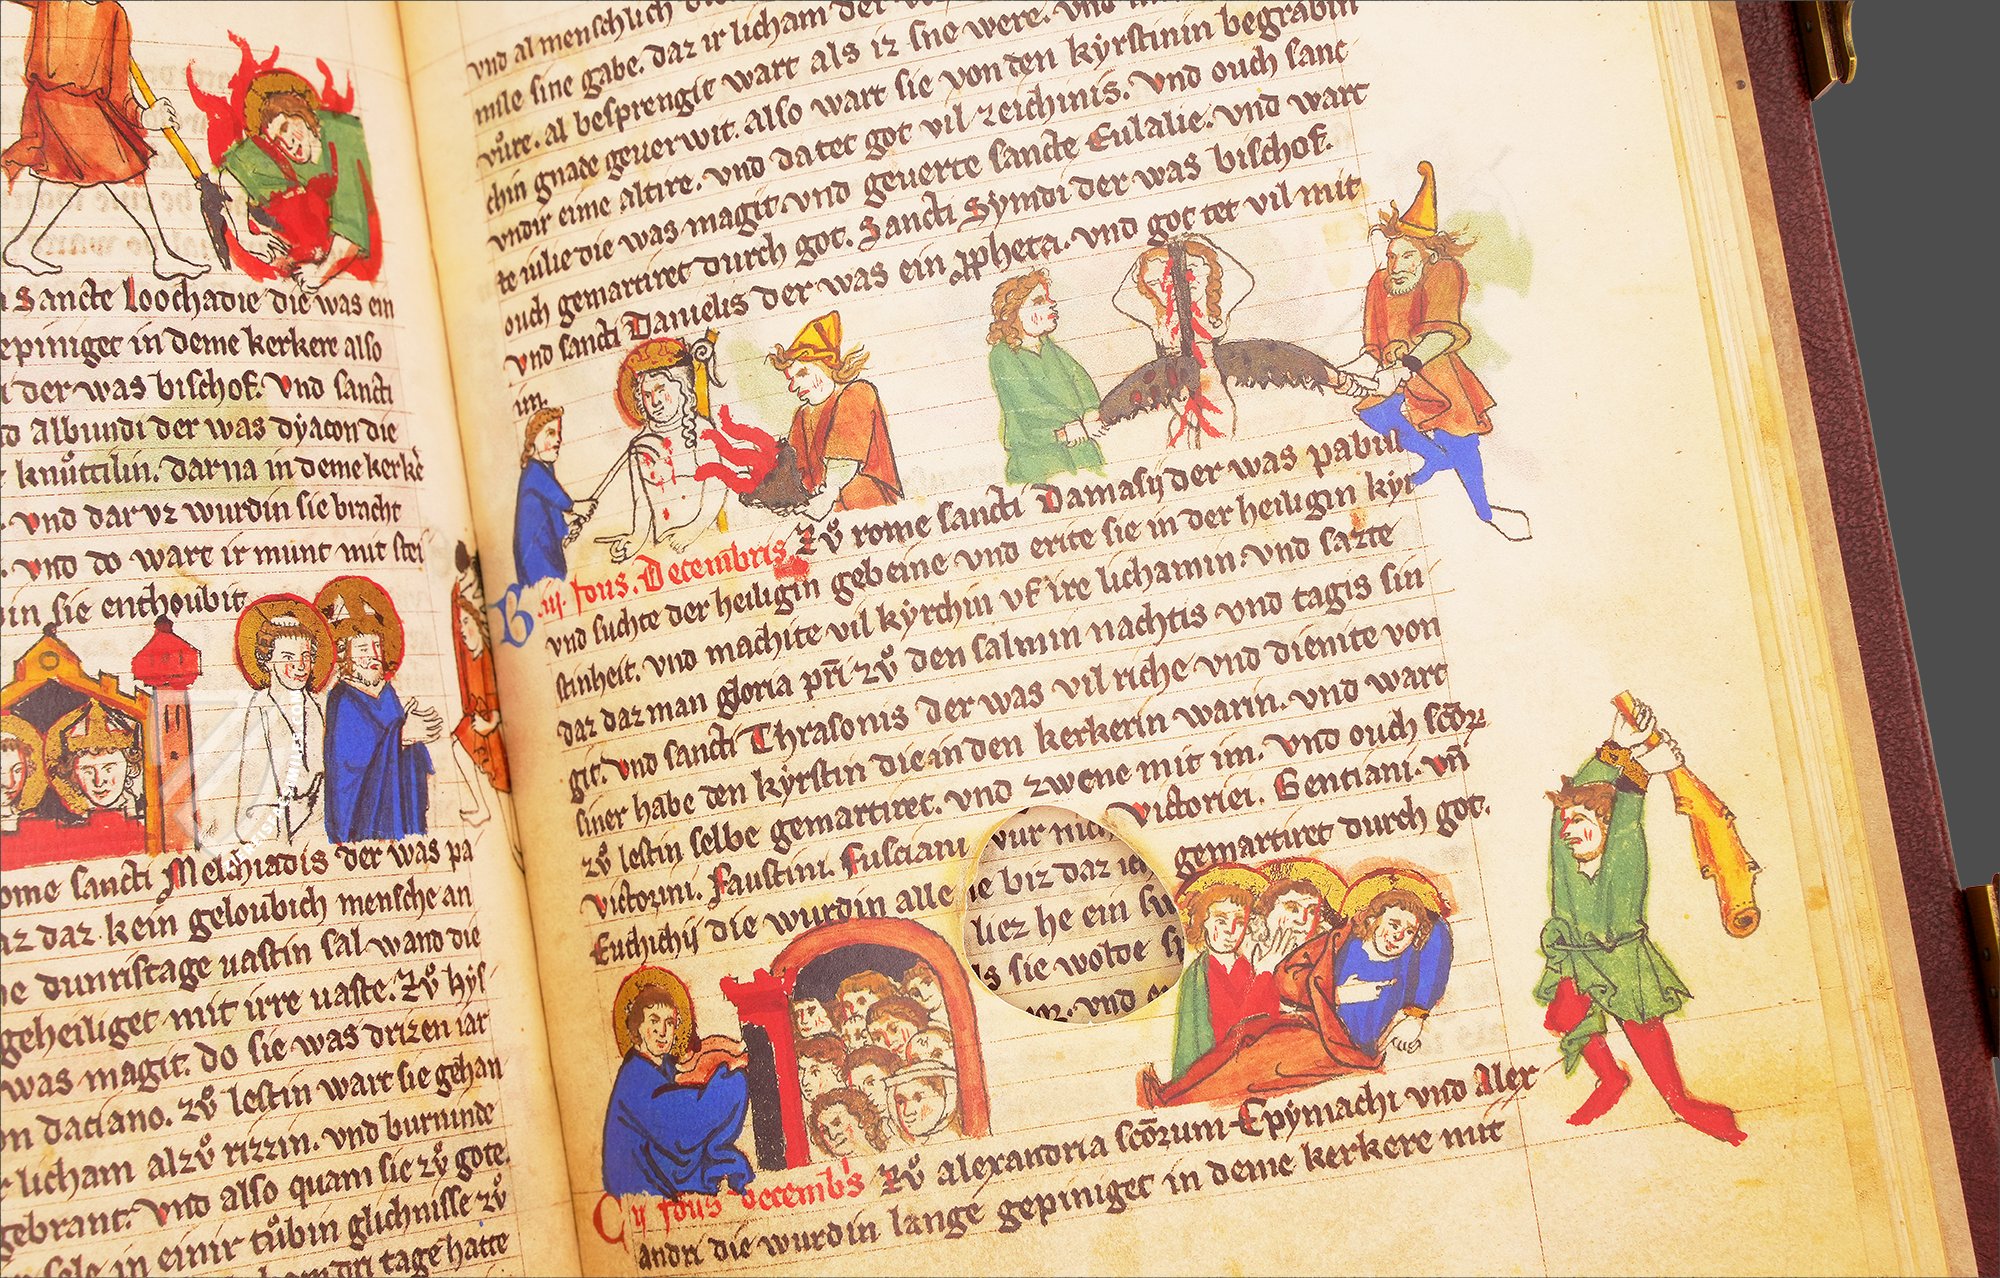 Sancte Loochadie die was ein
epiniget in deme kerkere also
der was bischof. Vnd sancti
albundi der was dyacon die
knüttilin. darna in deme kerkē
vnd dar vz wurdin sie bracht
vnd do wart ir munt mit stei
in sie enthoubit
ome sancti Melchiadis der was pa
az daz kein geloubich mensche an
e dunristage uastin sal wand die
geheiliget mit irre uaste. Zů hys
was magit. do sie was drizen iar
on daciano. zů lestin wart sie gehan
licham alzů rizzin. vnd burninde
gebrant. Vnd also quam sie zů gote.
sele in einir tůbin glichnisse zů
dri tage hatte
vnd al menschlich
misle sine gabe. daz ir licham der
vůre. al besprengit wart als iz sne were. vnd
chin gnade geuerwit. also wart sie von den kyrstinin begrabin
vndir eime altire. vnd da tet got vil zeichinis. vnd ouch sanc
te iulie die was magit. vnd geuerte sancte Eulalie. vnd wart
ouch gemartiret durch got. Sancti Syndi der was bischof.
vnd sancti Danielis der was ein ppheta. vnd got tet vil mit
im.
B iij. Idus. Decembris Zů rome sancti Damasij der was pabist
vnd suchte der heiligin gebeine vnd erite sie in der heiligin kyr
stinheit. vnd machite vil kyrchin vf ire lichamin. vnd sazte
daz daz man gloria pri zů den salmin nachtis vnd tagis sin
git. vnd sancti Thrasonis der was vil riche vnd dienite von
siner habe den kyrstin die in den kerkerin warin. vnd wart
zů lestin selbe gemartiret. vnd zwene mit im. Vnd ouch scōrū
Victorini. Faustini. Fusciani vur nich Victoriei. Gentiani. vn̄
Euthichij die wurdin alle ie biz daz ich gemartiret durch got.
liez he ein su
s sie wolde
vnd
C ij Idus decembs Zů alexandria scōrum Epymachi vnd Alex
andri die wurdin lange gepiniget in deme kerkere mit